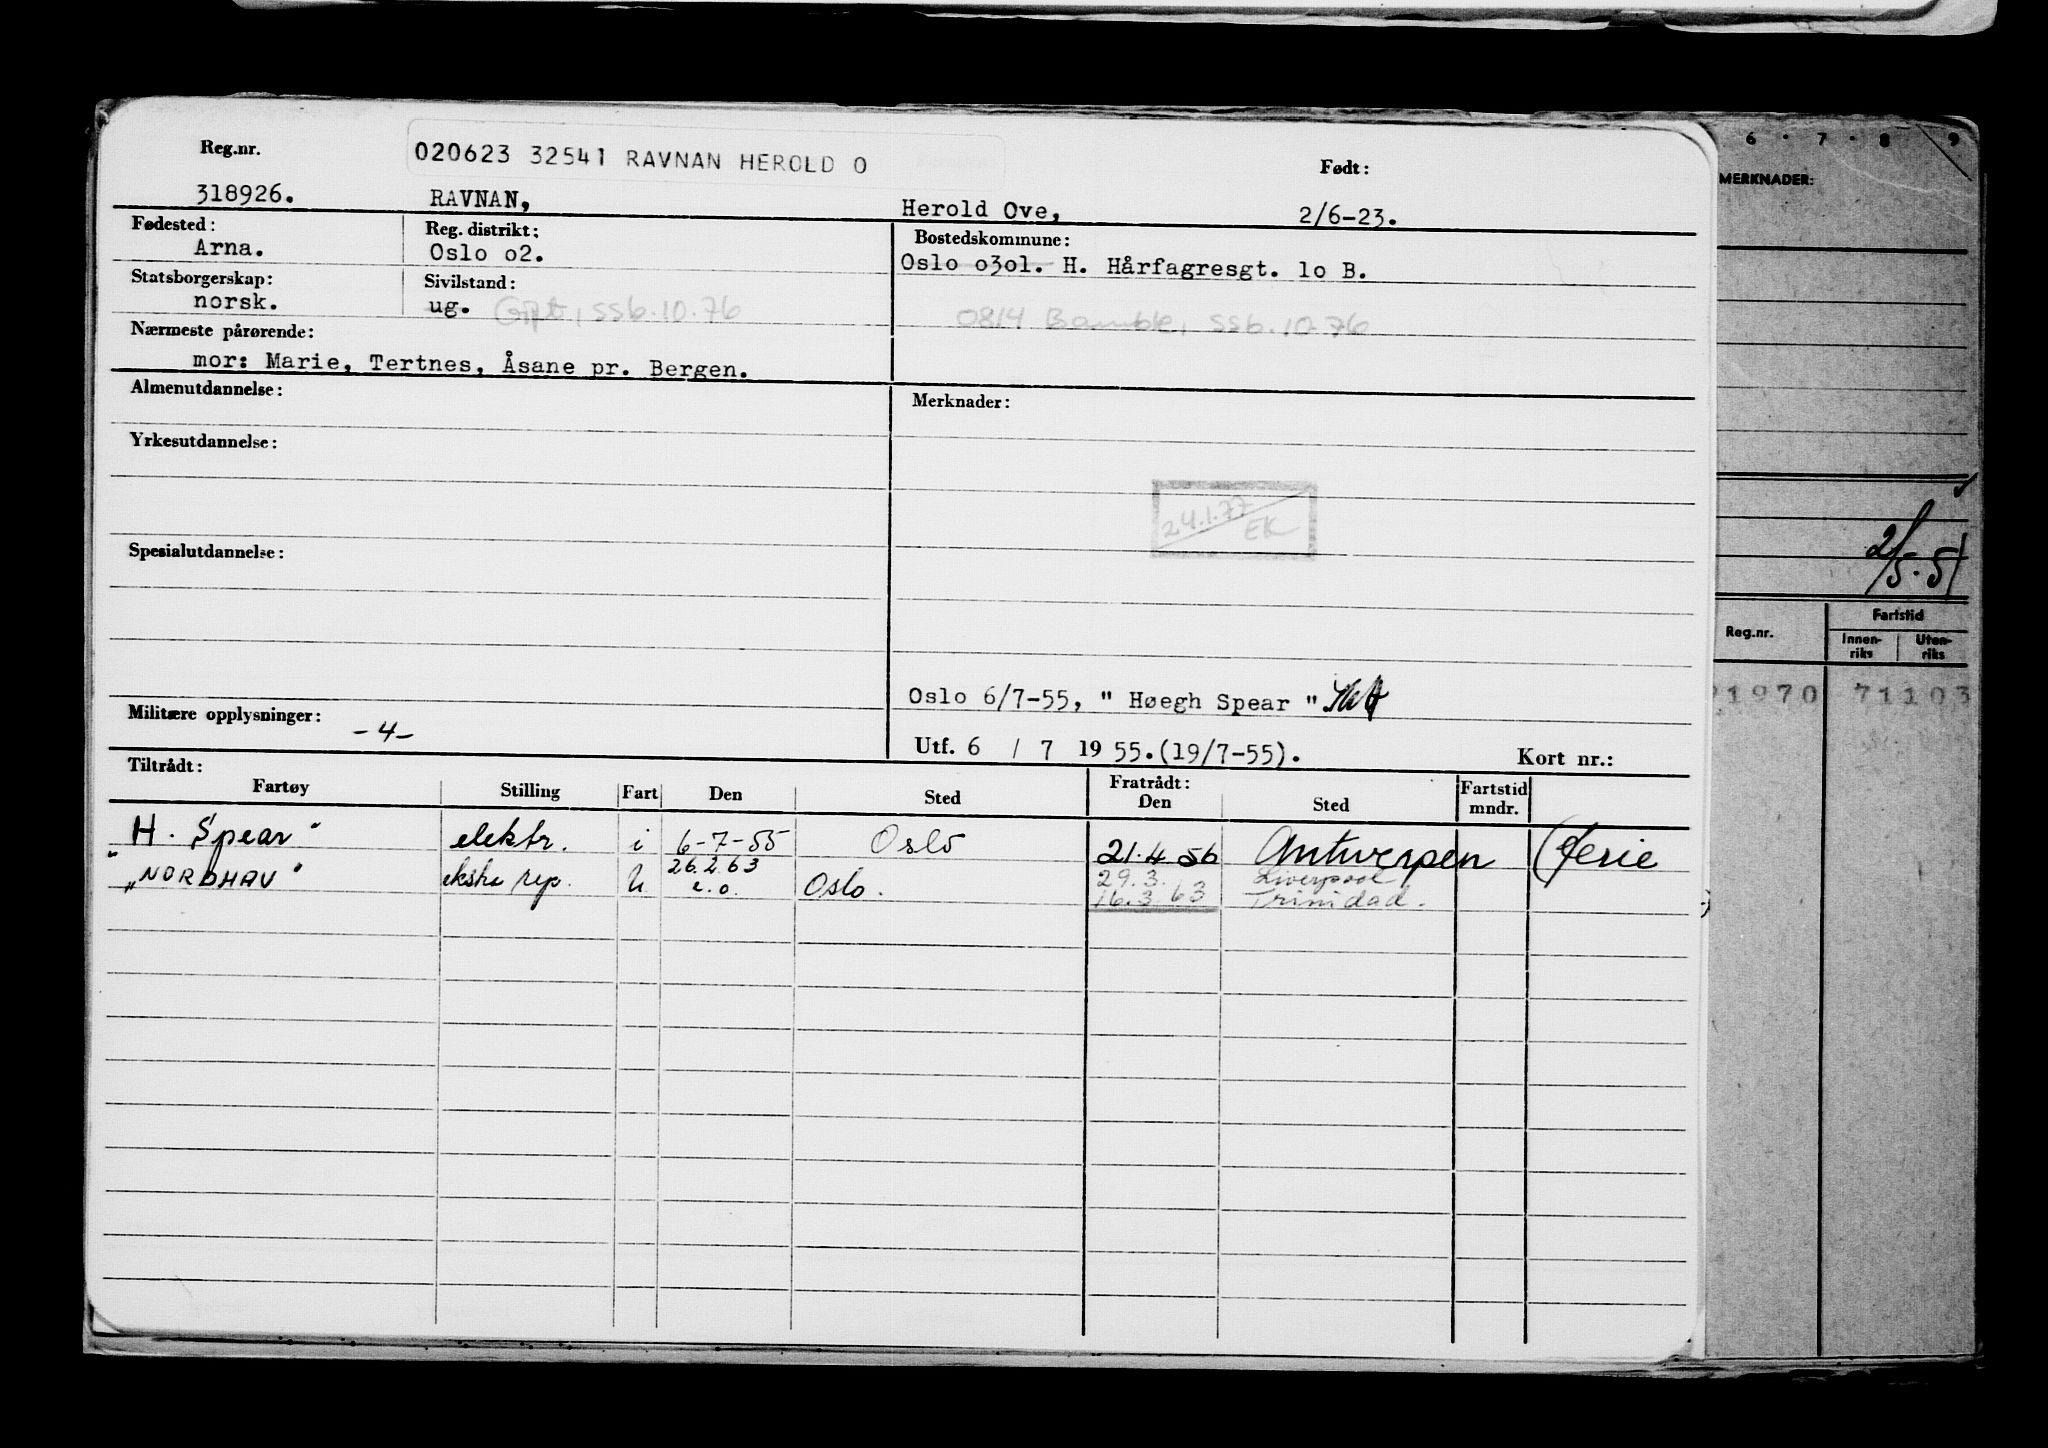 6 · 7 · 8 9
MERKNADER:
Reg.nr. 020623 32541 RAVNAN HEROLD O Født:
318926. RAVNAN, Herold Ove, 2/6-23.
Fødested: Reg. distrikt: Bostedskommune:
Arna. Oslo o2. Oslo o3o1. H. Hårfagresgt. 1o B.
Statsborgerskap: Sivilstand:
norsk. ug. Gift, ssb.10.76 0814 Bamble, ssb.10.76
Nærmeste pårørende:
mor: Marie, Tertnes, Åsane pr. Bergen.
Almenutdannelse: Merknader:
Yrkesutdannelse:
24.1.77
EK
Spesialutdannelse:
2/5-51
Reg.nr. Fartstid
Innen-riks Uten-riks
1970 71103
Oslo 6/7-55, " Høegh Spear "
Militære opplysninger:
-4-
Utf. 6 / 7 19 55.(19/7-55). Kort nr.:
Tiltrådt: Fratrådt:
Fartøy Stilling Fart Den Sted Den Sted Fartstid mndr.
"H. Spear" elektr. i 6-7-55 Oslo 21.4 56 Antwerpen (ferie
"NORDHAV" ekstra rep. U 26.2.63 e.o. Oslo. 29.3. Liverpool
16.3.63 Trinidad.